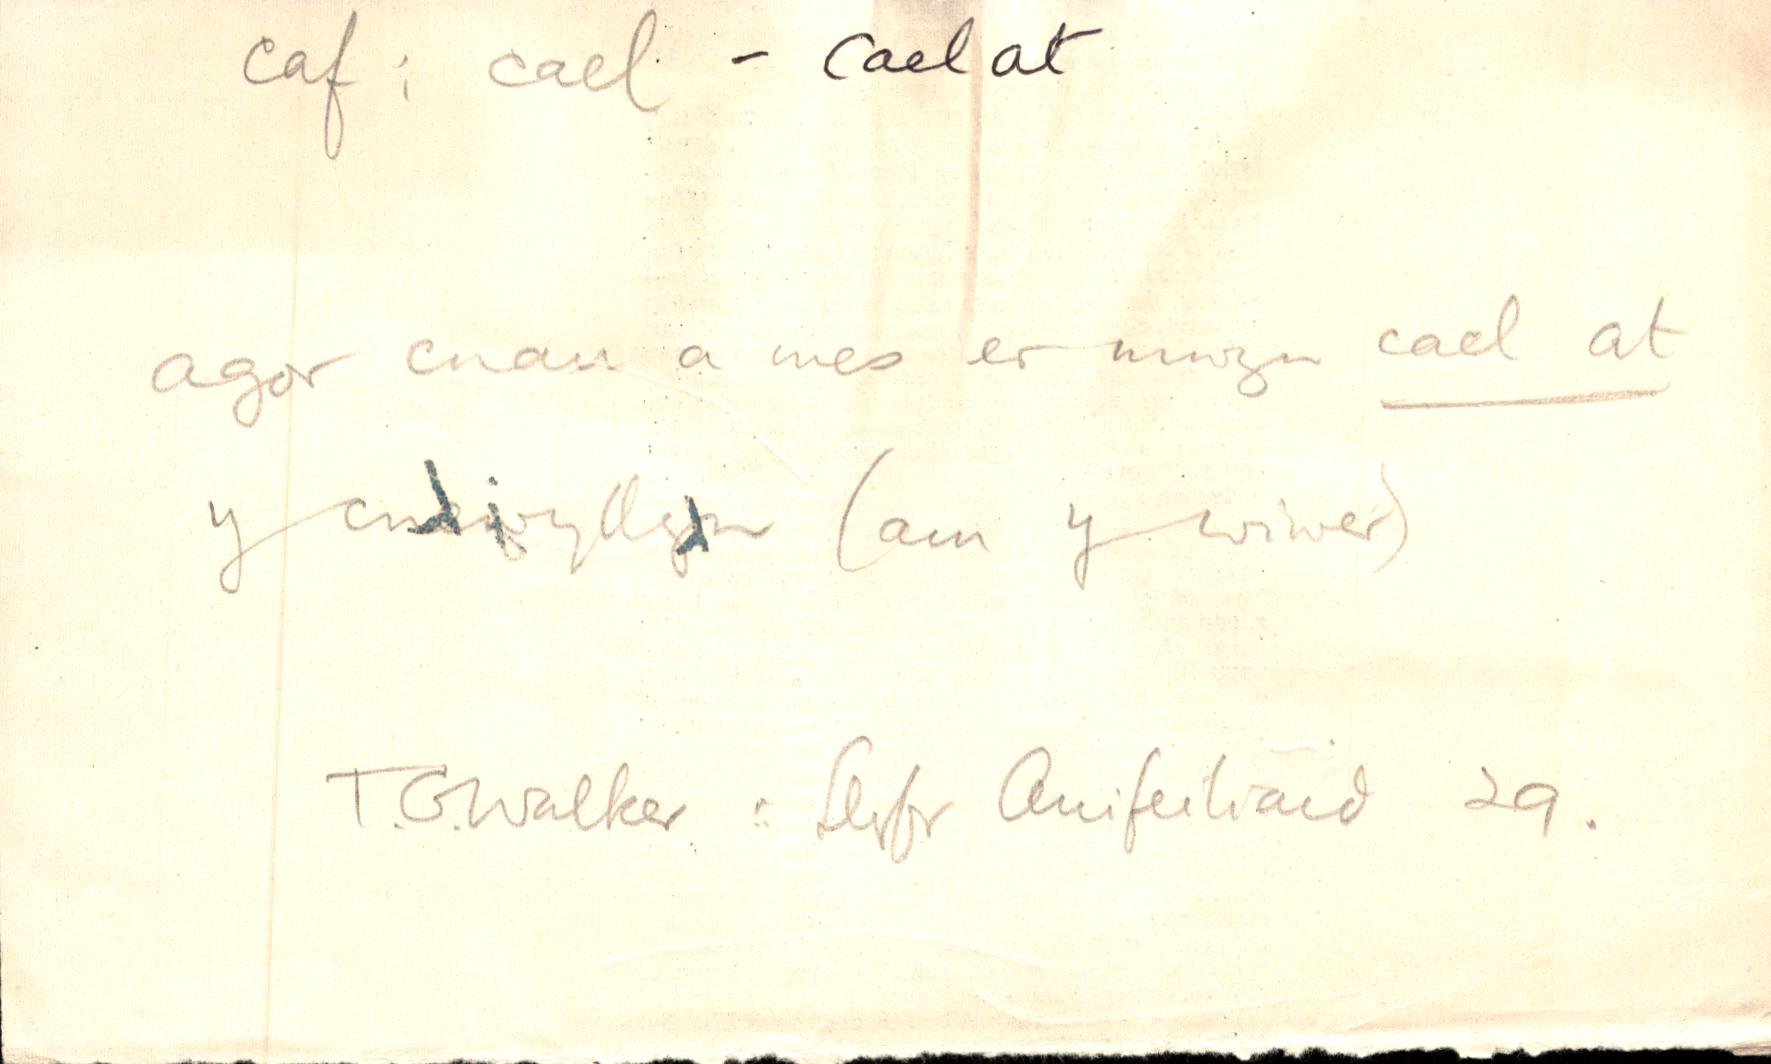 caf : cael - cael at
agor cnau a mes er mwyn cael at
y cnewyllyn (am y wiwer)
T.G.Walker : Llyfr Anifeiliaid 29.